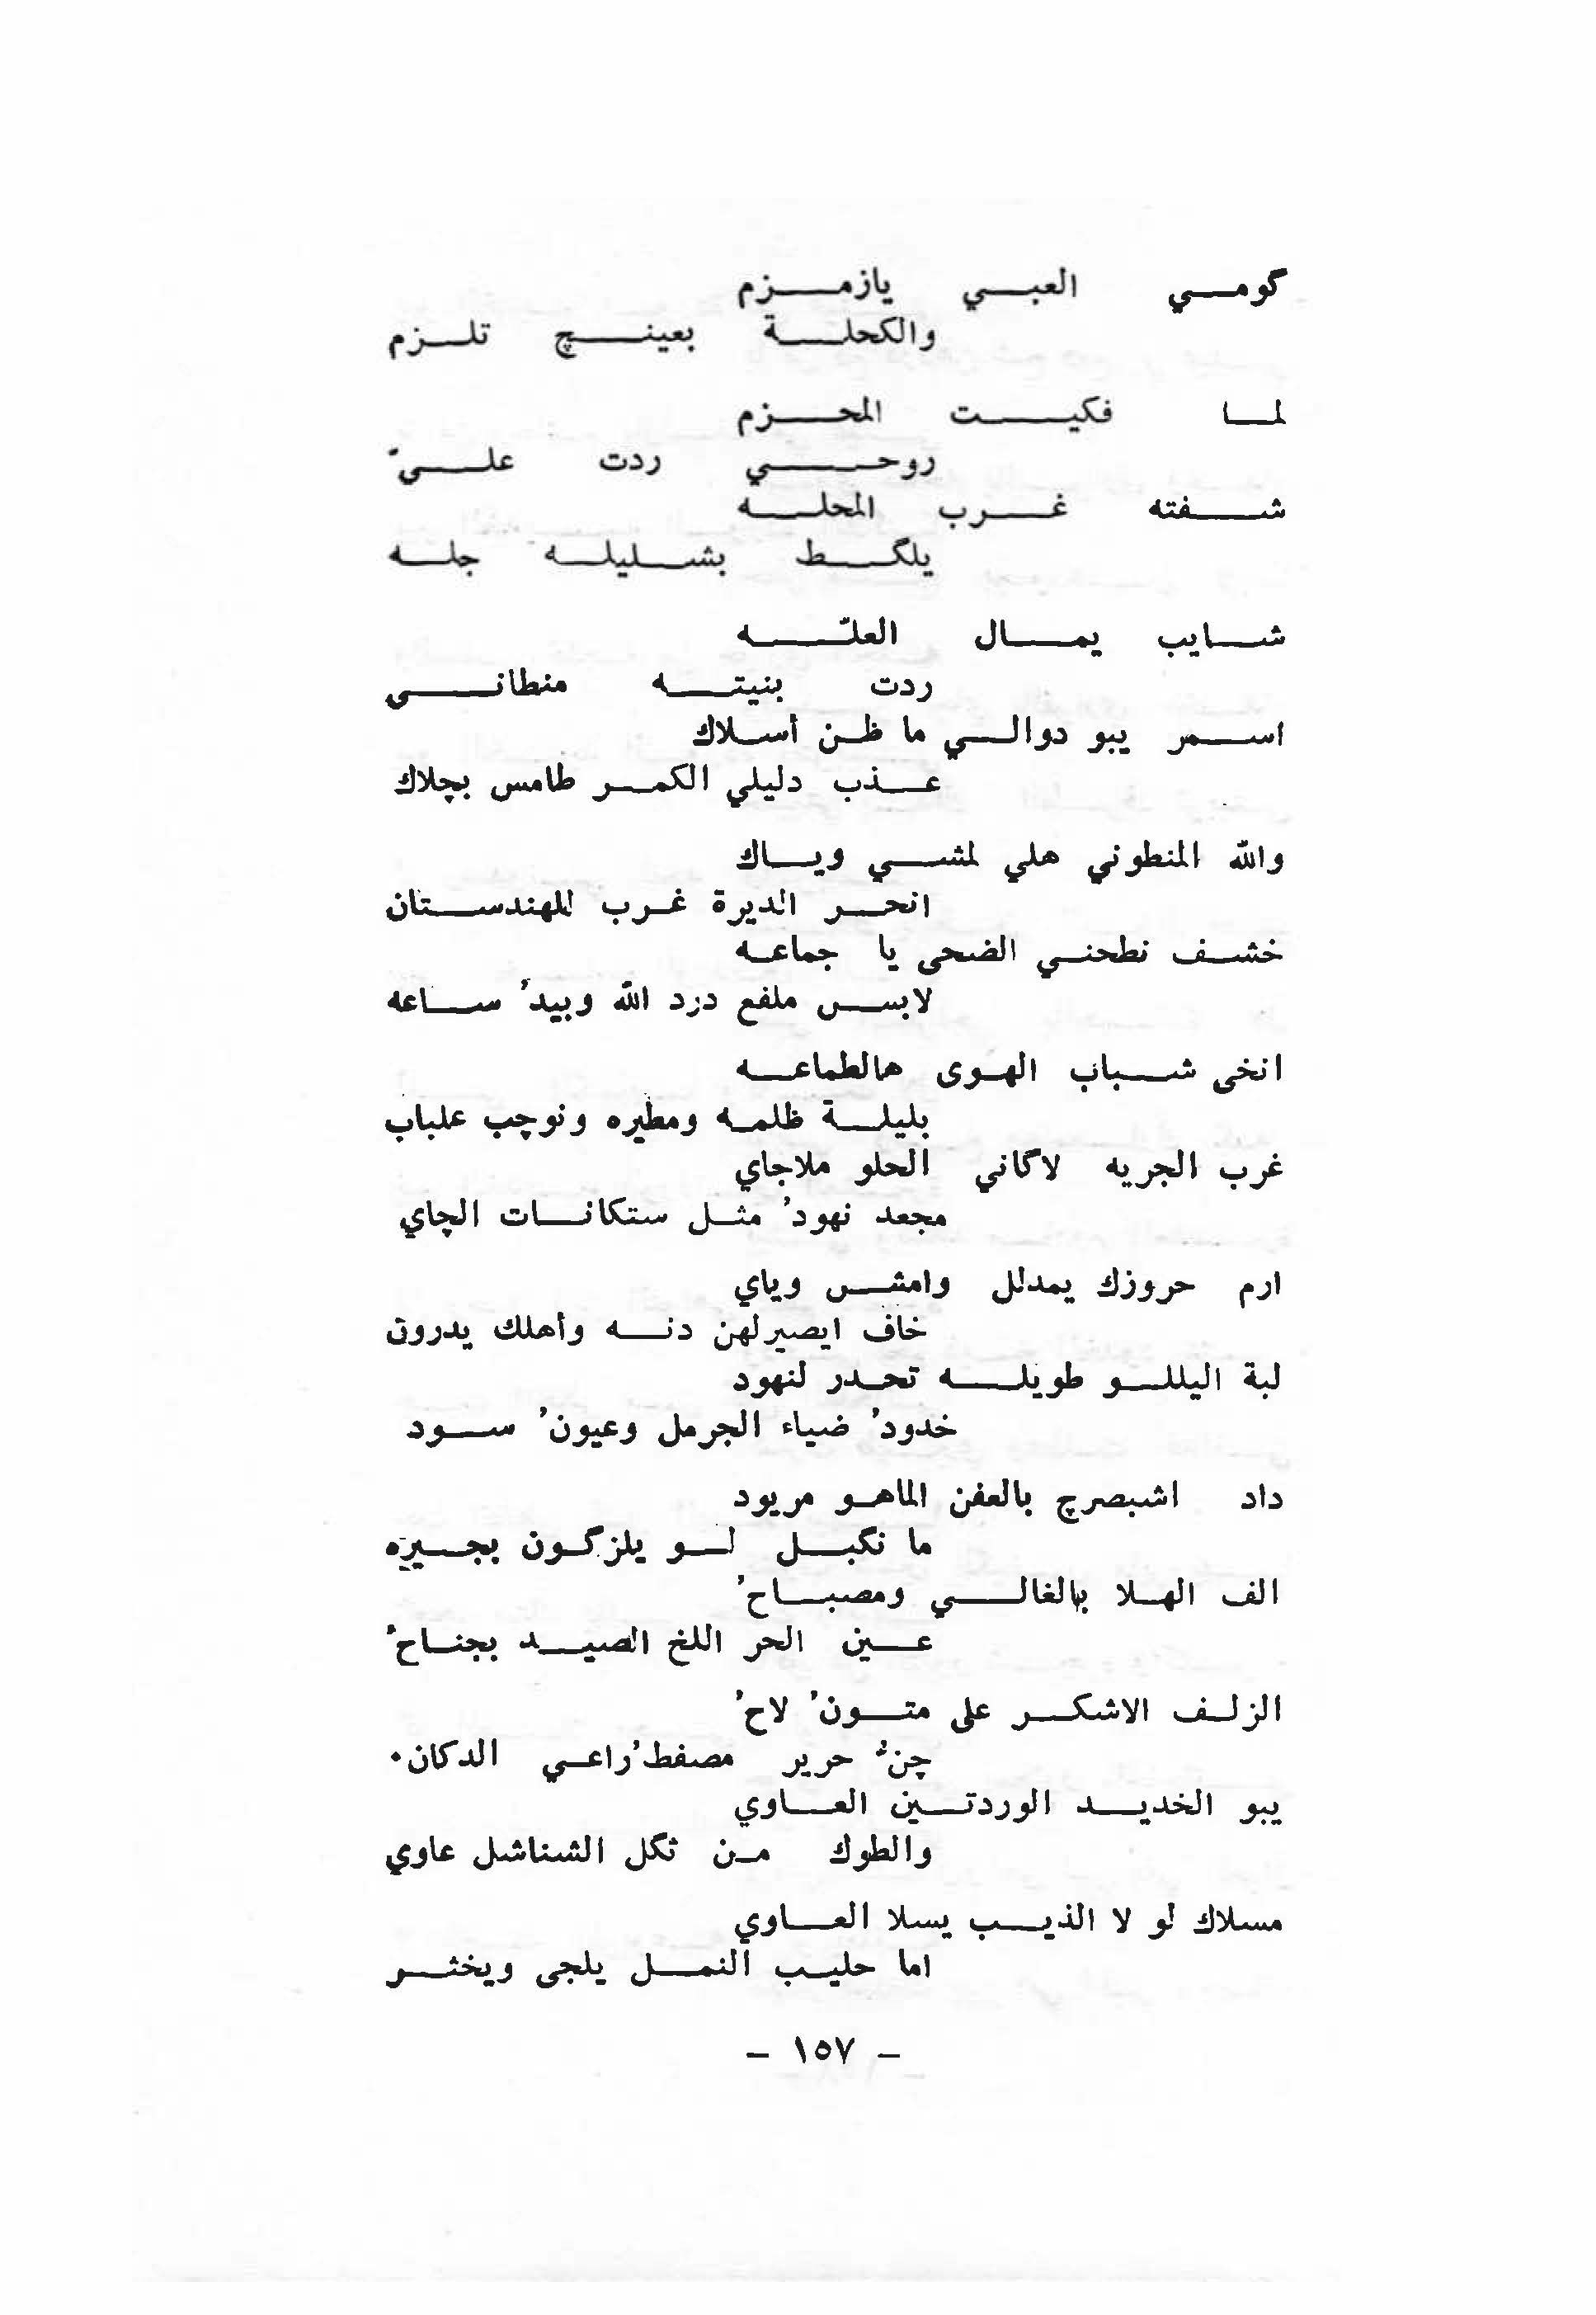 گومي العبي يازمزم
والكحلة بعينچ تلزم
لما فكيت المحزم
روحي ردت عليّ
شفته غرب المحله
يلگط بشليله جله
شايب يمال العلّه
ردت بنيته منطانى
اسمر يبو دوالي ما ظن أسلاك
عذب دليلي الكمر طامس بچلاك
والله المنطوني هلي لمشي وياك
انحر الديرة غرب للهندستان
خشف نطحني الضحى يا جماعه
لابس ملفع درد الله وبيدʼ ساعه
انخى شباب الهوى هالطماعه
بليلة ظلمه ومطيره ونوچب علباب
غرب الجريه لاگاني الحلو ملاجاي
مجعد نهودʼ مثل ستكانات الچاي
ارم حروزك يمدلل وامش وياي
خاف ايصيرلهن دنه وأهلك يدرون
لبة اليللو طويله تحدر لنهود
خدودʼ ضياء الجرمل وعيونʼ سود
داد اشبصرچ بالعفن الماهو مريود
ما نگبل لو يلزگون بجيزه
الف الهلا بالغالي ومصباحʼ
عين الحر اللخ الصيد بجناحʼ
الزلف الاشكر على متونʼ لاحʼ
چنʼ حرير مصفطʼ راعي الدكان٠
يبو الخديد الوردتين العاوي
والطوك من ثگل الشناشل عاوي
مسلاك لو لا الذيب يسلا العاوي
اما حليب النمل يلجى ويخثر
- ١٥٧ -